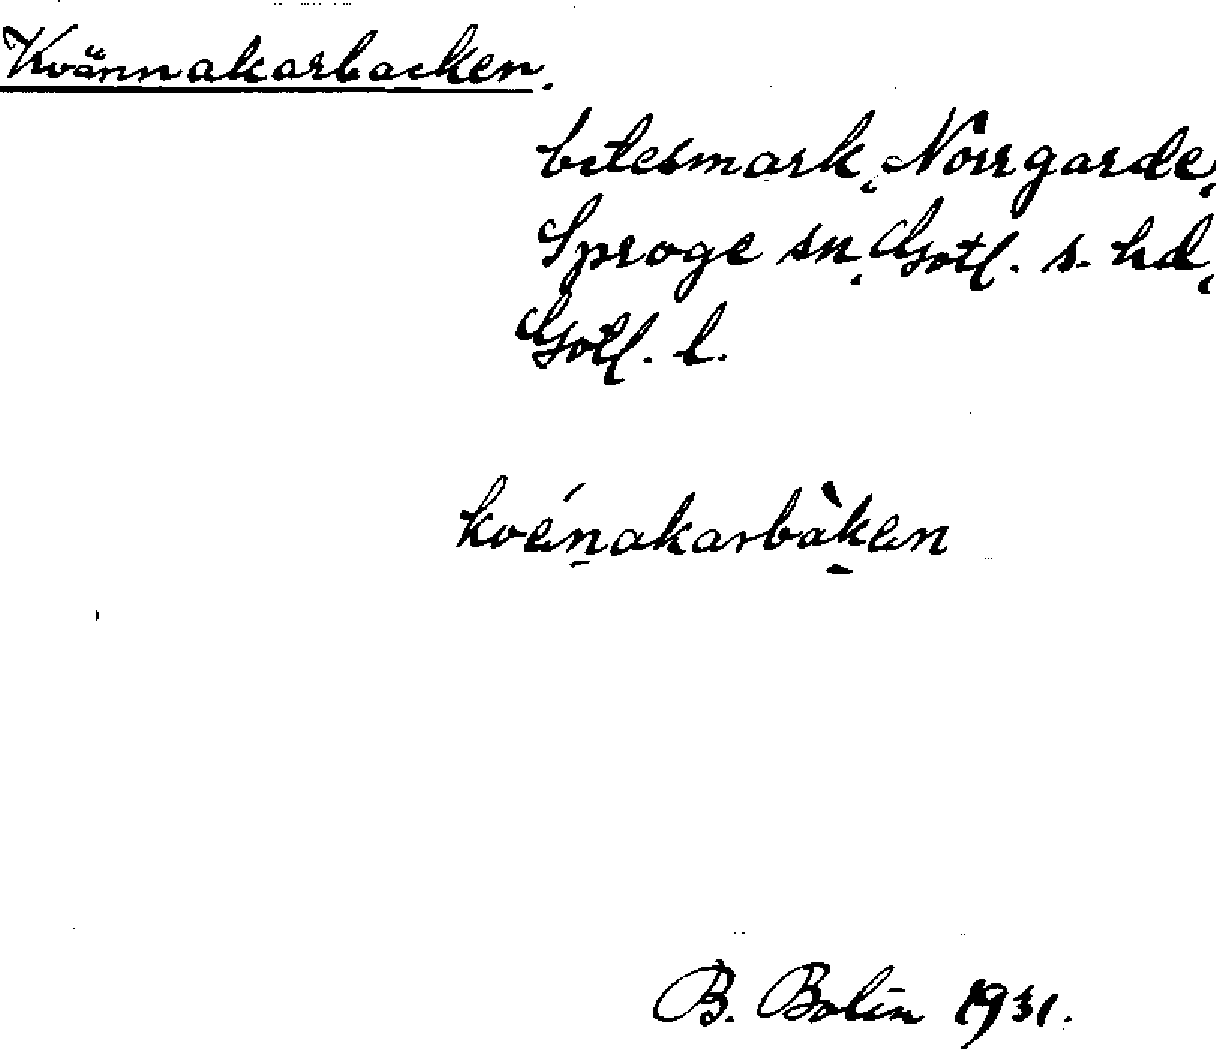 Kvännakarbacken.
betesmark, Norrgarde,
Sproge sn, Gotl. s. hd,
Gotl. l.
kvénakarbàken
B. Bolin 1931.